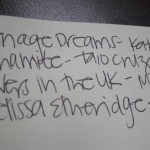 nage Dreams - Kat
namite - Taio Cruz
vers in the UK - M
elissa Etheridge -